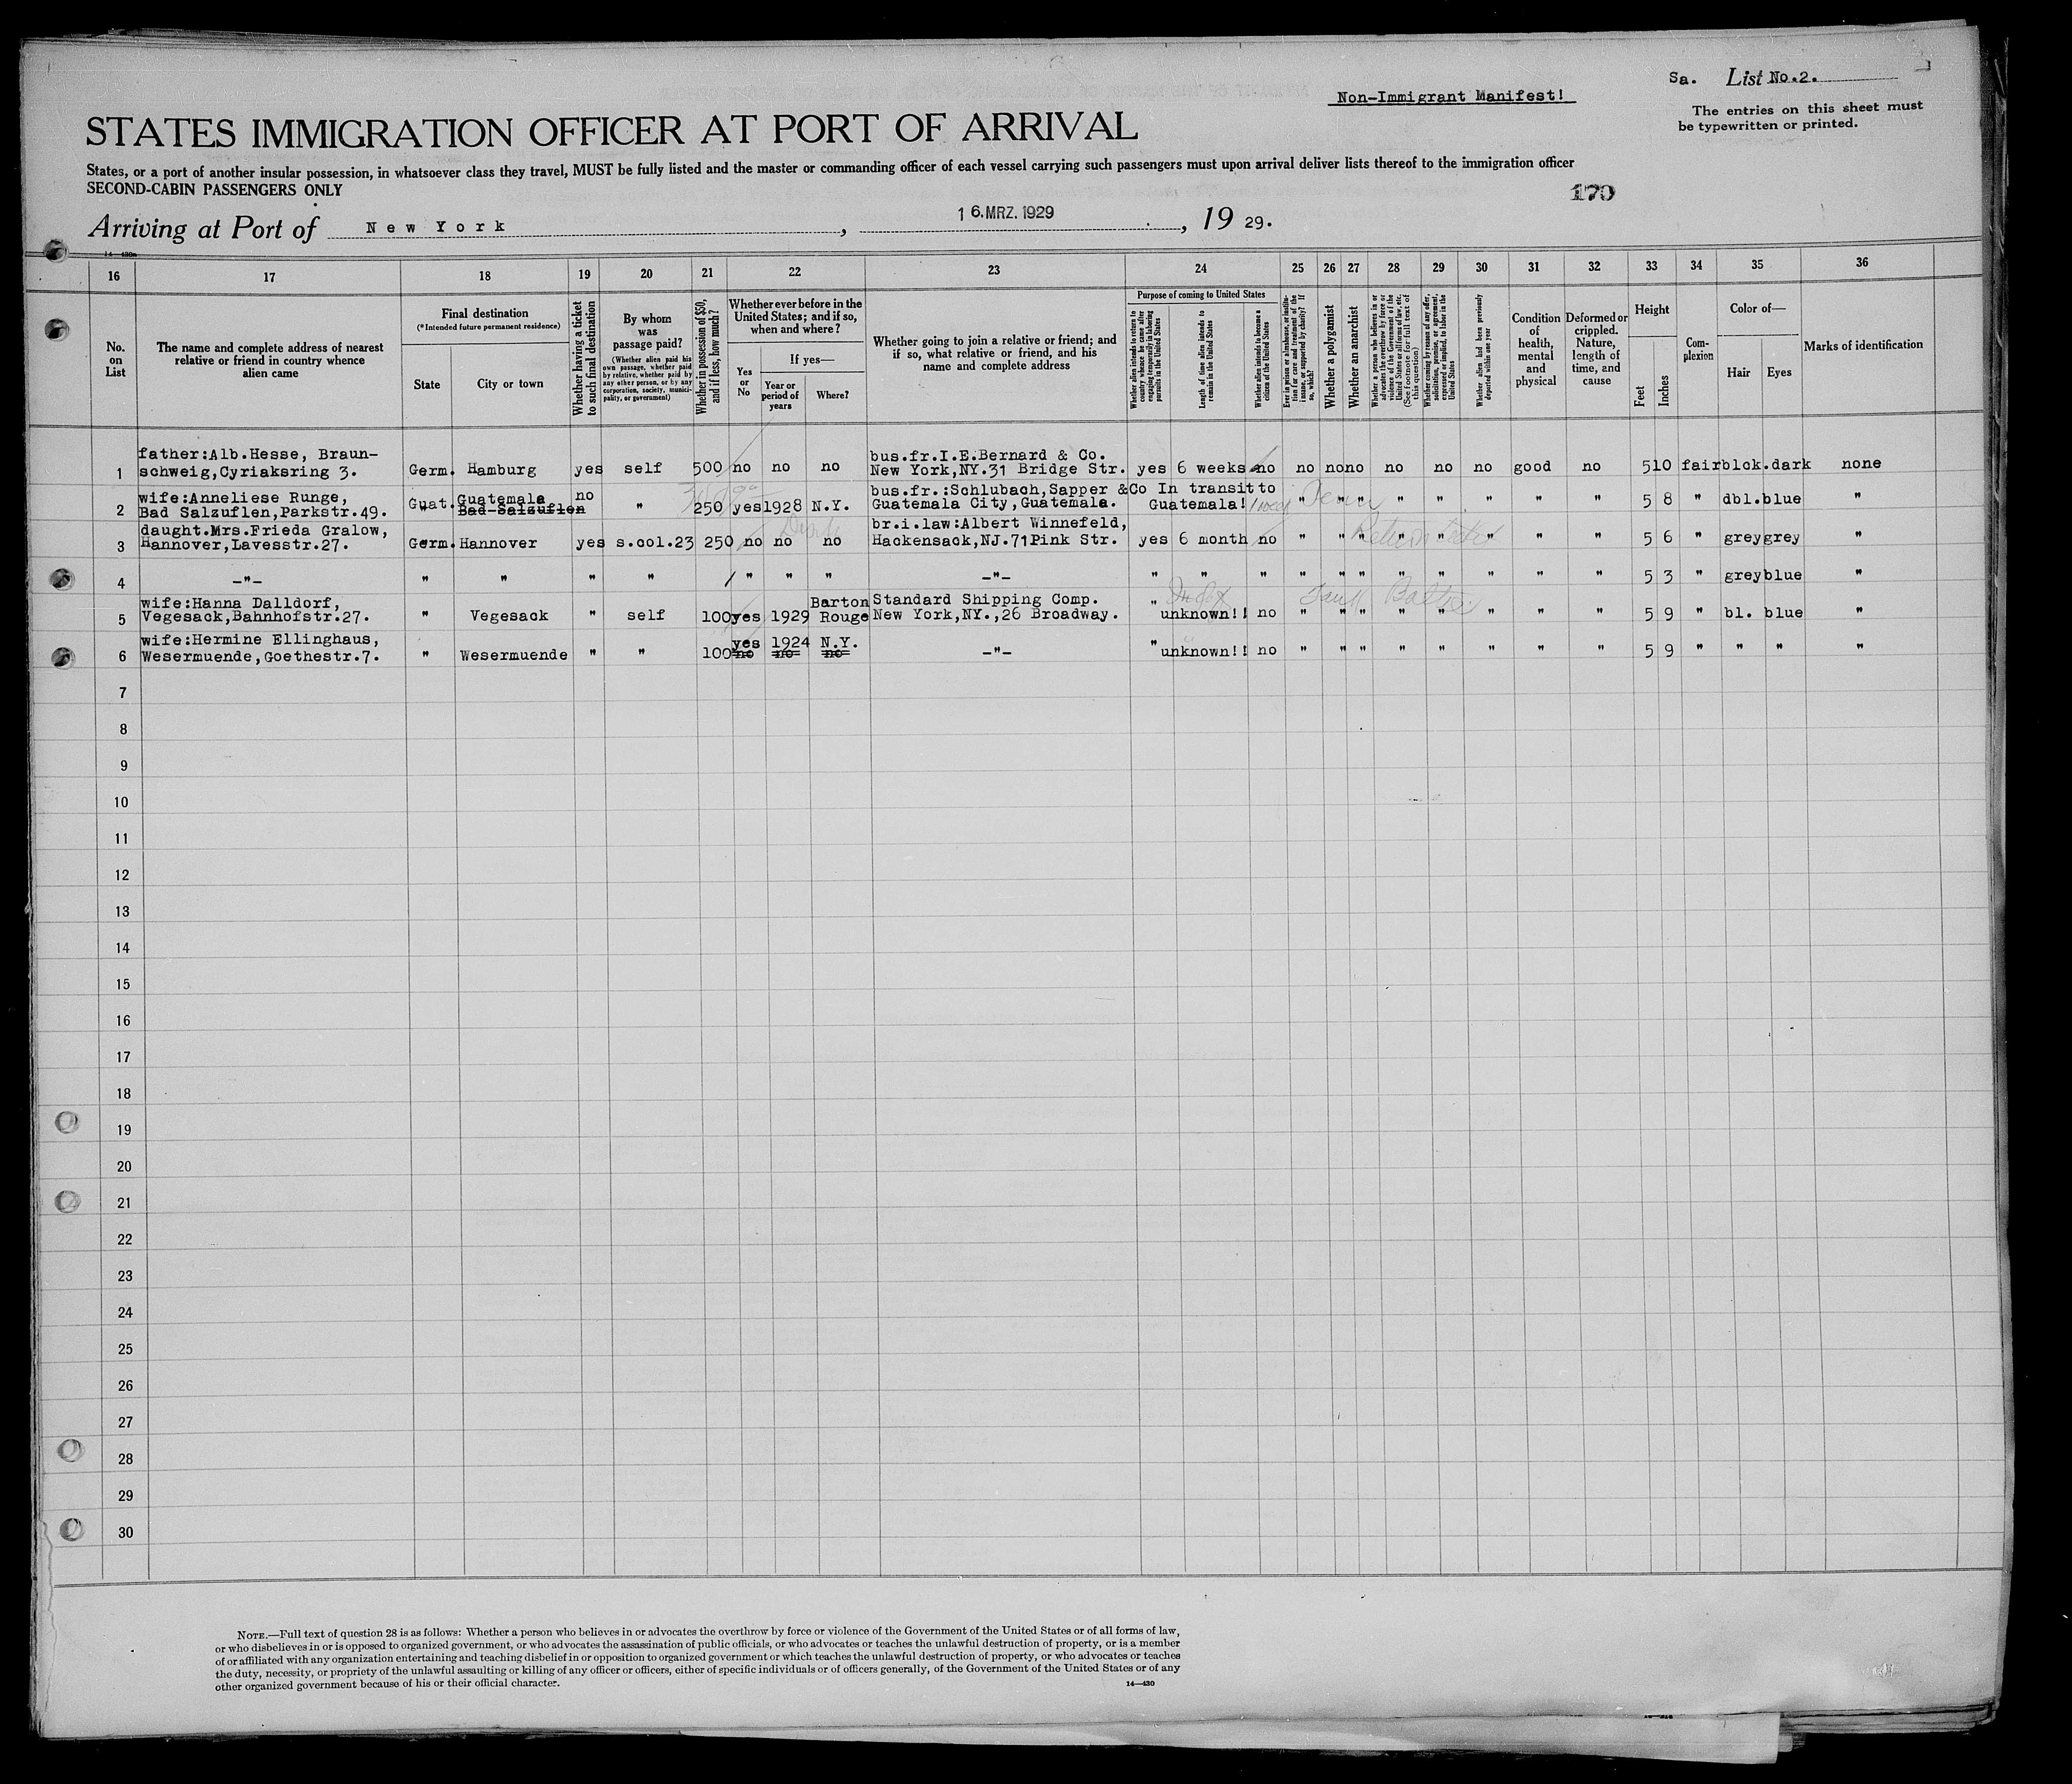 Sa. List No.2.
Non-Immigrant Manifest!
The entries on this sheet must
be typewritten or printed.
STATES IMMIGRATION OFFICER AT PORT OF ARRIVAL
States, or a port of another insular possession, in whatsoever class they travel, MUST be fully listed and the master or commanding officer of each vessel carrying such passengers must upon arrival deliver lists thereof to the immigration officer
SECOND-CABIN PASSENGERS ONLY
170
Arriving at Port of New York, 16.MRZ.1929, 19 29.
16 17 18 19 20 21 22 23 24 25 26 27 28 29 30 31 32 33 34 35 36
No.
on
List
The name and complete address of nearest
relative or friend in country whence
alien came
Final destination
(*Intended future permanent residence)
State
City or town
Whether having a ticket
to such final destination
By whom
was
passage paid?
(Whether alien paid his
own passage, whether paid
by relative, whether paid by
any other person, or by any
corporation, society, munici-
pality, or government)
Whether in possession of $50,
and if less, how much?
Whether ever before in the
United States; and if so,
when and where?
Yes
or
No
If yes—
Year or
period of
years
Where?
Whether going to join a relative or friend; and
if so, what relative or friend, and his
name and complete address
Purpose of coming to United States
Whether alien intends to return to
country whence he came after
engaging temporarily in laboring
pursuits in the United States
Length of time alien intends to
remain in the United States
Whether alien intends to become a
citizen of the United States
Ever in prison or almshouse, or institu-
tion for care and treatment of the
insane, or supported by charity? If
so, which?
Whether a polygamist
Whether an anarchist
Whether a person who believes in or
advocates the overthrow by force or
violence of the Government of the
United States or all forms of law, etc.
(See footnote for full text of
this question)
Whether coming by reason of any offer,
solicitation, promise, or agreement,
expressed or implied, to labor in the
United States
Whether alien had been previously
deported within one year
Condition
of
health,
mental
and
physical
Deformed or
crippled.
Nature,
length of
time, and
cause
Height
Feet
Inches
Com-
plexion
Color of—
Hair
Eyes
Marks of identification
father:Alb.Hesse, Braun-
bus.fr.I.E.Bernard & Co.
1 schweig,Cyriaksring 3. Germ. Hamburg yes self 500 no no no New York,NY.31 Bridge Str. yes 6 weeks no no no no no no no good no 5 10 fair blck. dark none
wife:Anneliese Runge, Guatemala no bus.fr.:Schlubach,Sapper &Co In transit to
2 Bad Salzuflen,Parkstr.49. Guat. Bad Salzuflen " 250 yes 1928 N.Y. Guatemala City,Guatemala. Guatemala! " " " " " " " " 5 8 " dbl. blue "
daught.Mrs.Frieda Gralow, br.i.law:Albert Winnefeld,
3 Hannover,Lavesstr.27. Germ. Hannover yes s.col.23 250 no no no Hackensack,NJ.71Pink Str. yes 6 month no " " " " " " " " 5 6 " grey grey "
4 -"- " " " " " " " -"- " " " " " " " " " " " 5 3 " grey blue "
wife:Hanna Dalldorf, Barton Standard Shipping Comp.
5 Vegesack,Bahnhofstr.27. " Vegesack " self 100 yes 1929 Rouge New York,NY.,26 Broadway. " unknown!! no " " " " " " " " 5 9 " bl. blue "
wife:Hermine Ellinghaus, yes 1924 N.Y.
6 Wesermuende,Goethestr.7. " Wesermuende " " 100 no no no -"- " unknown!! no " " " " " " " " 5 9 " " " "
7
8
9
10
11
12
13
14
15
16
17
18
19
20
21
22
23
24
25
26
27
28
29
30
NOTE.—Full text of question 28 is as follows: Whether a person who believes in or advocates the overthrow by force or violence of the Government of the United States or of all forms of law,
or who disbelieves in or is opposed to organized government, or who advocates the assassination of public officials, or who advocates or teaches the unlawful destruction of property, or is a member
of or affiliated with any organization entertaining and teaching disbelief in or opposition to organized government or which teaches the unlawful destruction of property, or who advocates or teaches
the duty, necessity, or propriety of the unlawful assaulting or killing of any officer or officers, either of specific individuals or of officers generally, of the Government of the United States or of any
other organized government because of his or their official character.
14—430